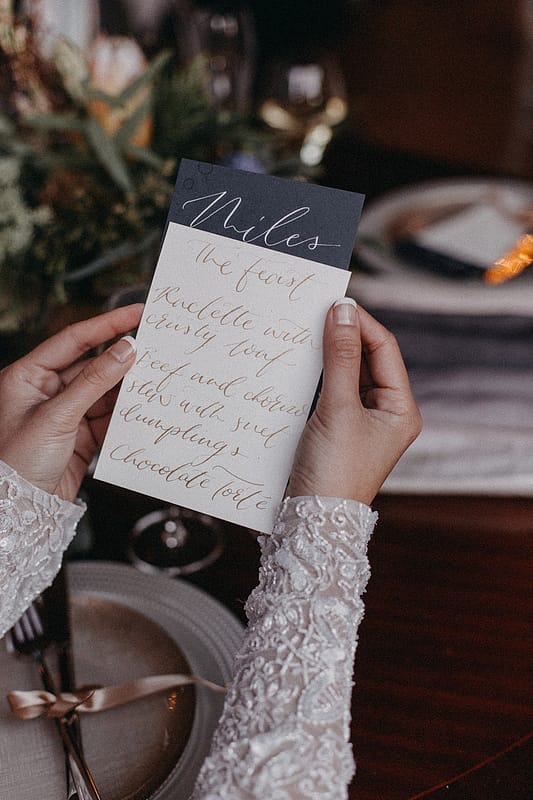 Miles
The feast
Raclette with
crusty loaf
Beef and chorizo
stew with suet
dumplings
Chocolate Torte